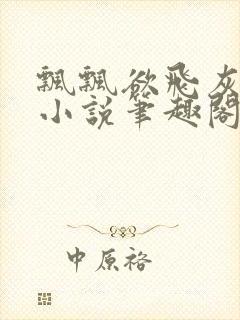 飄飄欲飛灰
小說筆趣閣
中原裕